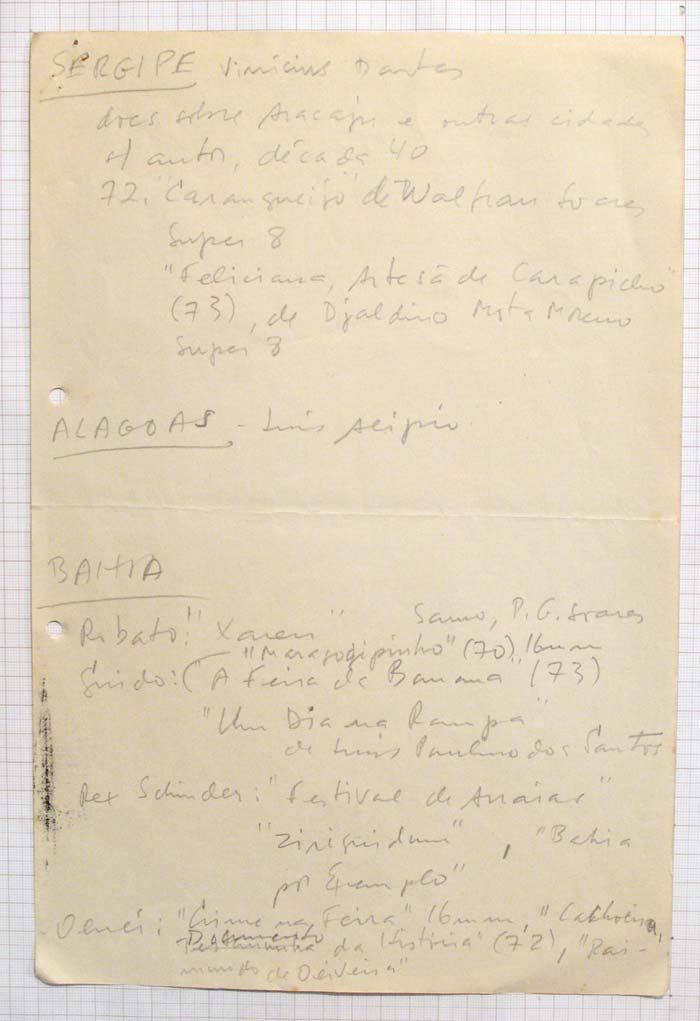 SERGIPE Vinicius Dantas
docs sobre Aracaju e outras cidades
s/ autor, década 40
72. "Carangueijo" de Walfran Soares
Super 8
"Feliciana, Artesã de Carapicho"
(73), de Djaldino Mota Moreno
Super 8
ALAGOAS - Luis
BAHIA
Robato: "Xareu" P. G. Soares
"Maragogipinho" (70) 16mm
Guido: ("A Feira da Banana" (73)
"Um Dia na Rampa"
de Luis Paulino dos Santos
Rex Schinder: "Festival de Arraias"
"Ziriguidum", "Bahia
por Exemplo"
"Crime na Feira" 16mm, "Cachoeira,
Documento
da História" (72), "Rai-
mundo de Oliveira"